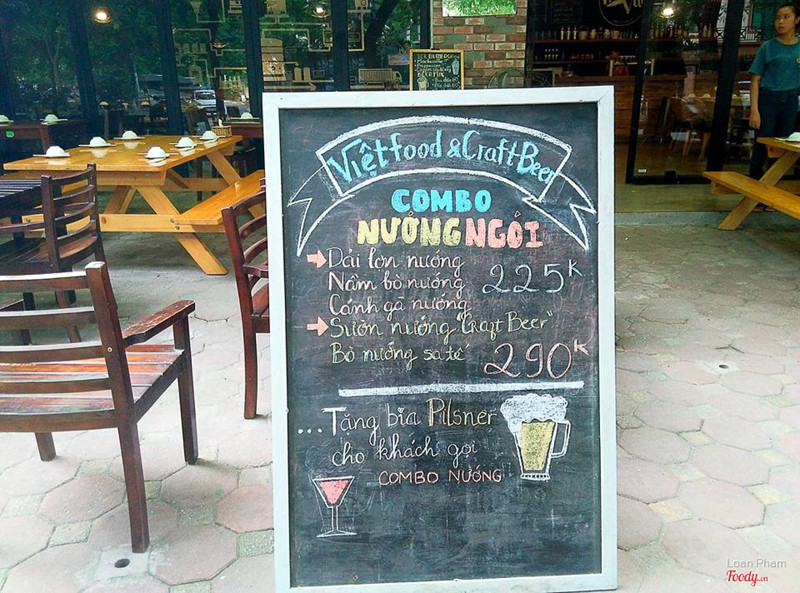 Việt food & Craft Beer
COMBO
NƯỚNG NGÓI
Dải lợn nướng
Nầm bò nướng
225K
Cánh gà nướng
Sườn nướng "Craft Beer"
Bò nướng sa tế
290K
...Tặng bia Pilsner
cho khách gọi
COMBO NƯỚNG
Loan Pham
Foody.vn